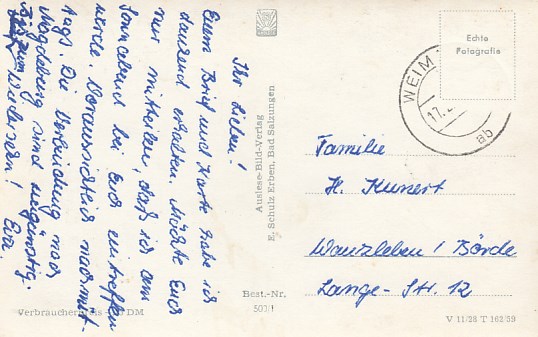 Ihr Lieben!
Euern Brief und Karte habe ich
dankend erhalten. Möchte Euch
nur mitteilen, daß ich am
Sonnabend bei Euch eintreffen
werde. Voraussichtlich nachmit-
tags. Die Verbindung nach
Magdeburg sind ungünstig.
Bis zum Eva.
Auslese-Bild-Verlag
E. Schulz Erben, Bad Salzungen
Verbraucherpreis DM
Best.-Nr.
501/1
WEIM
17.
ab
Echte
Fotografie
Familie
H. Kunert
Wanzleben/ Börde
Lange-Str. 12
V 11/28 T 162/59